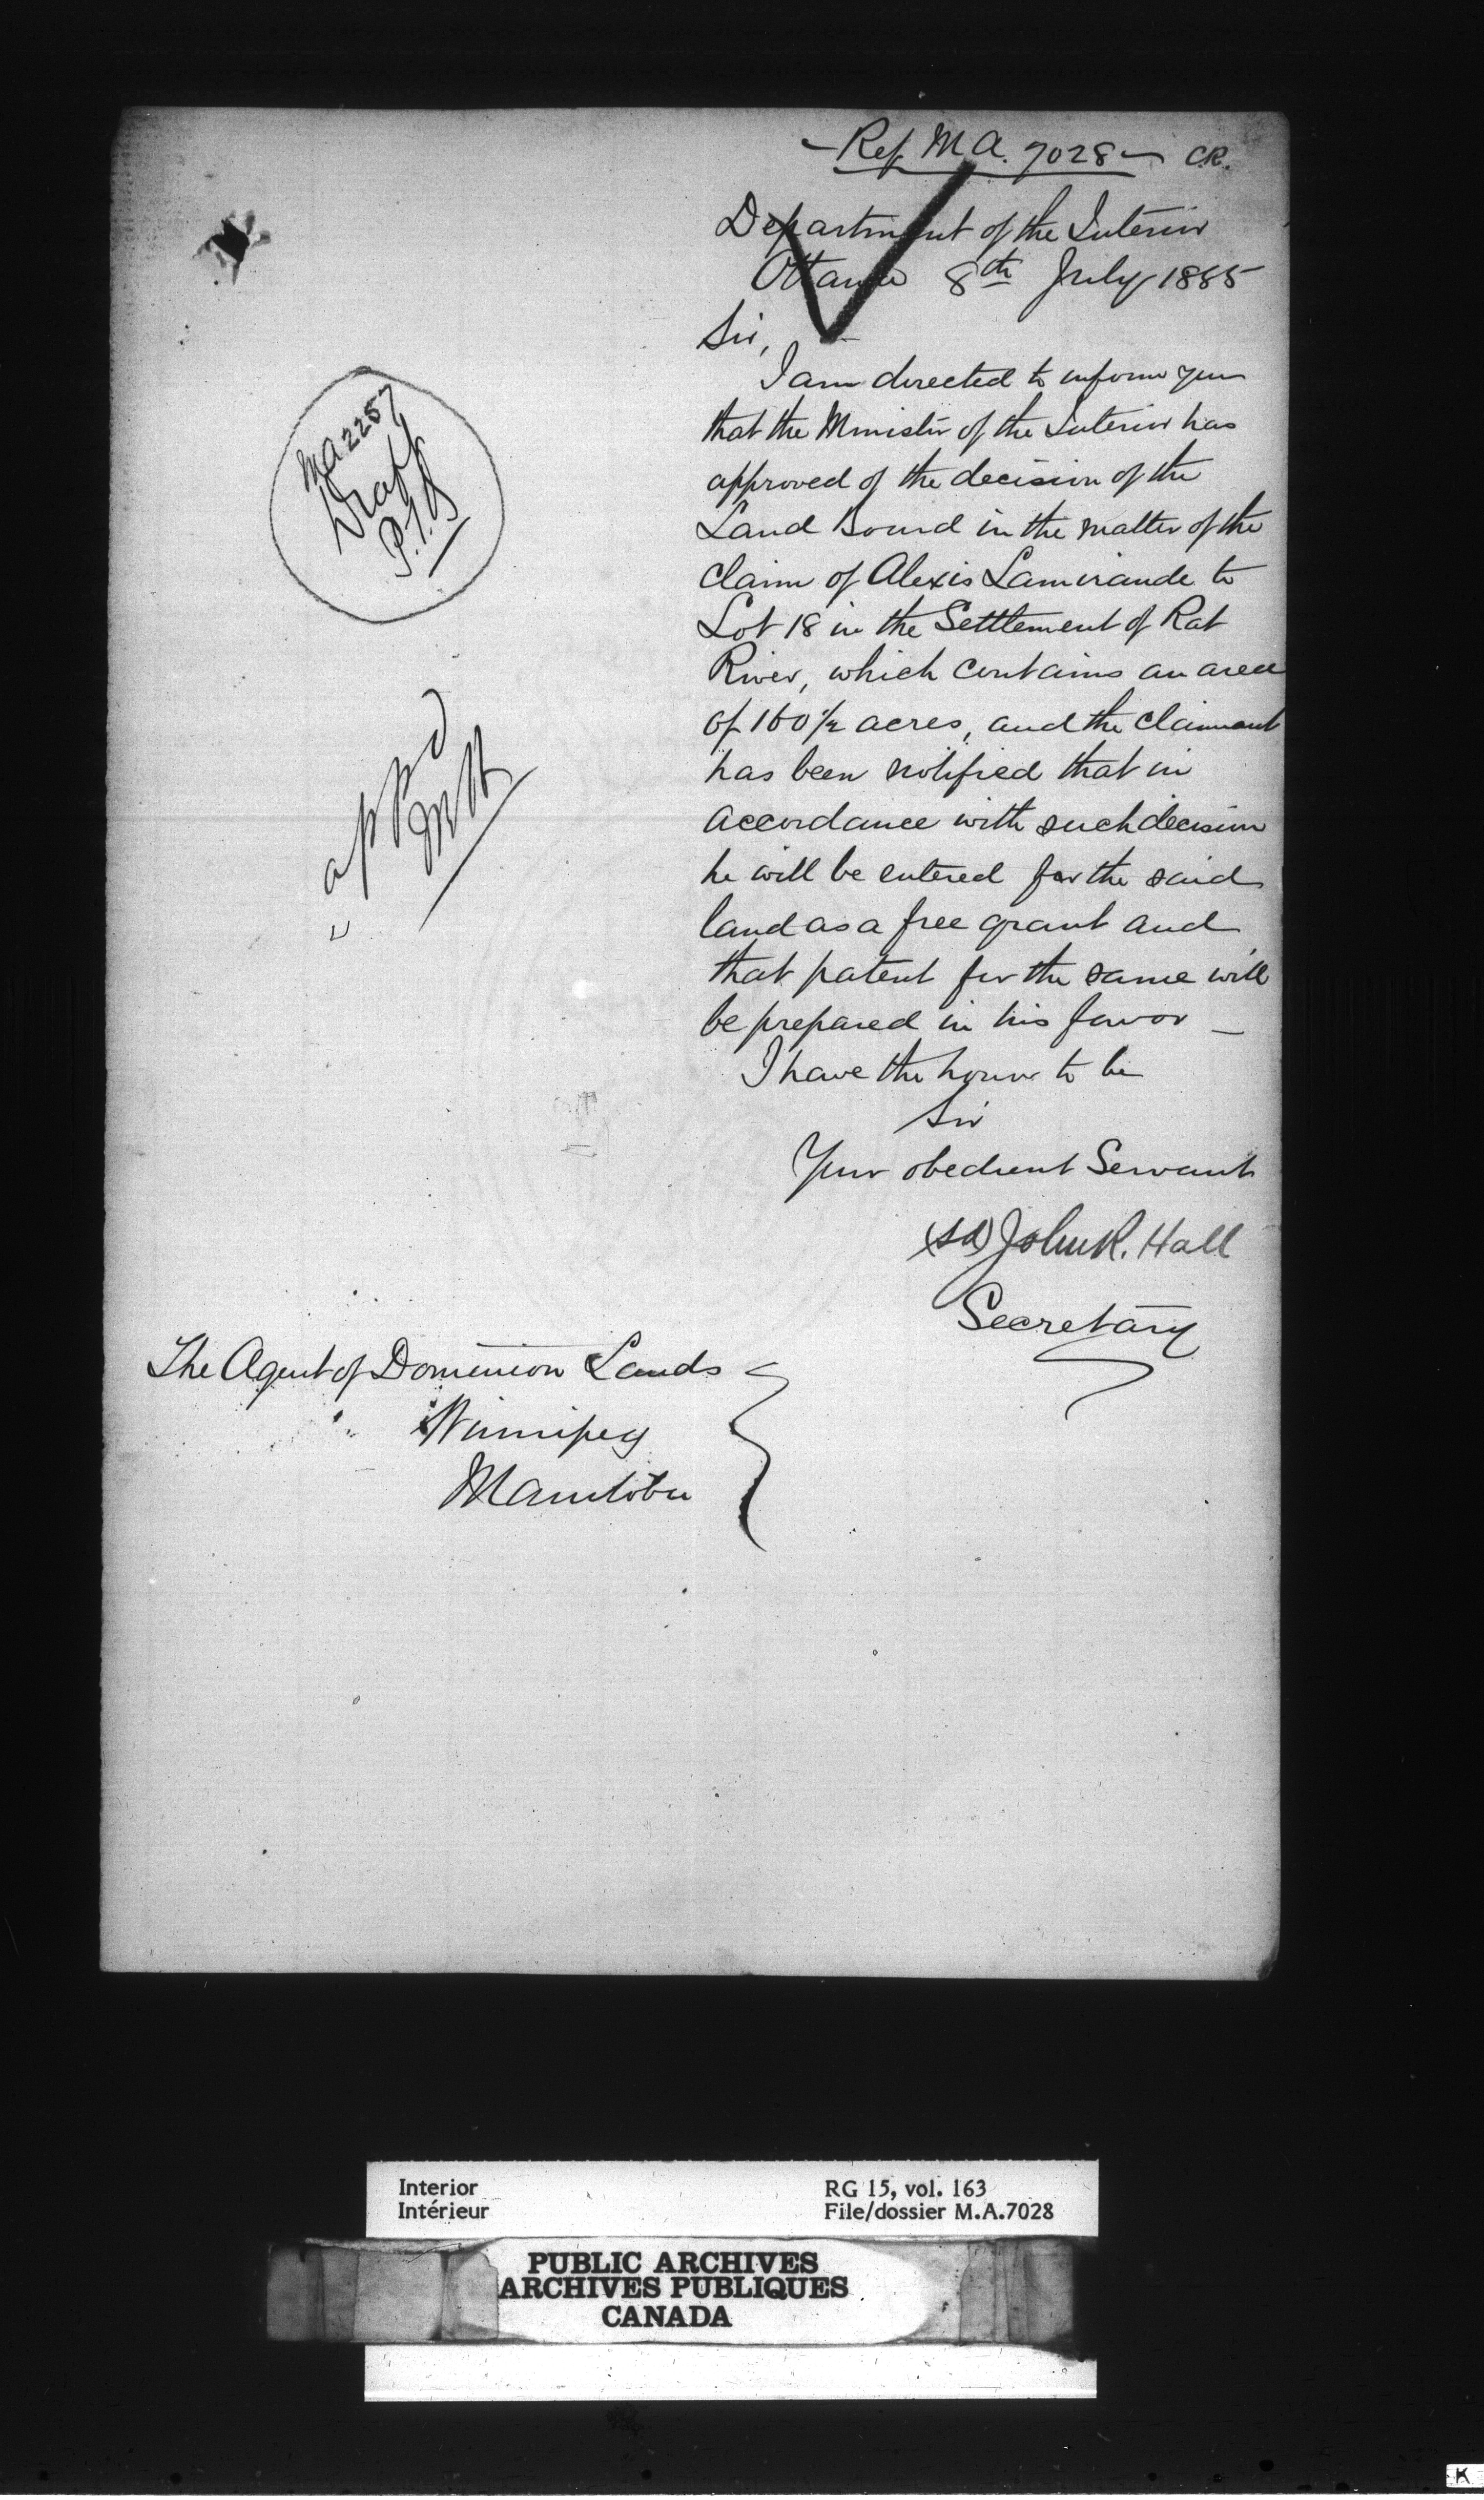 Ref. M A. 7028 C.R.
Department of the Interior
Ottawa 8th July 1885
Sir,
I am directed to inform you
that the Minister of the Interior has
approved of the decision of the
Land Board in the matter of the
claim of Alexis Lamirande to
Lot 18 in the Settlement of Rat
River, which contains an area
of 160½ acres, and the claimant
has been notified that in
accordance with such decision
he will be entered for the said
land as a free grant and
that patent for the same will
be prepared in his favor _
I have the honor to be
Sir
Your obedient Servant
(Sd) John R. Hall
Secretary
MA 2257
Draft
appd
The Agent of Dominion Lands
Winnipeg
Manitoba
Interior
Intérieur
RG 15, vol. 163
File/dossier M.A.7028
PUBLIC ARCHIVES
ARCHIVES PUBLIQUES
CANADA
K